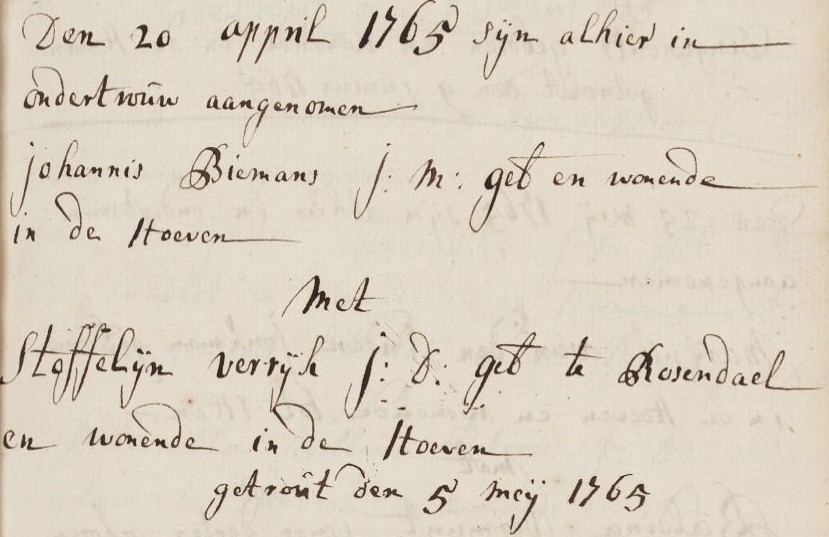 Den 20 appril 1765 sijn alhier in
ondertrouw aangenomen
johannis Biemans j: m: geb en wonende
in de Hoeven
Met
Stoffelijn verrijk j: d: geb te Rosendael
en wonende in de Hoeven
getrout den 5 meij 1765